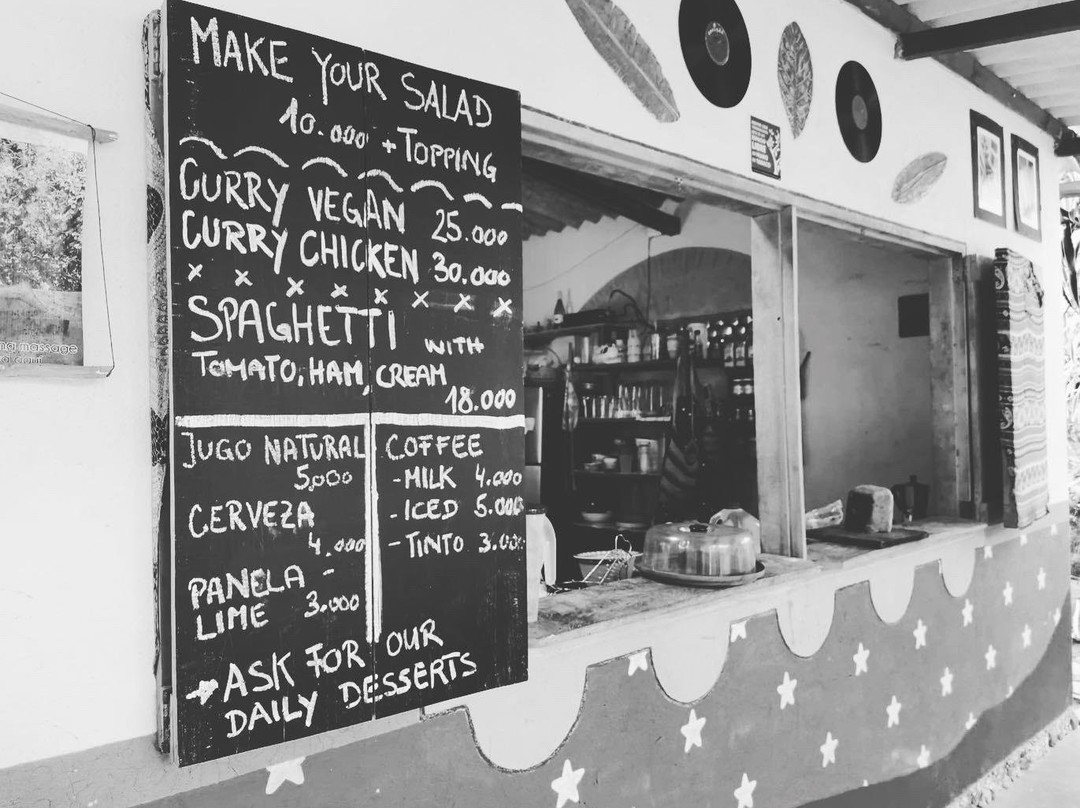 MAKE YOUR SALAD
10.000 + TOPPING
CURRY VEGAN 25.000
CURRY CHICKEN 30.000
SPAGHETTI WITH
TOMATO, HAM, CREAM
18.000
JUGO NATURAL
5,000
CERVEZA
4.000
PANELA -
LIME 3.000
COFFEE
-MILK 4.000
-ICED 5.000
-TINTO 3.000
→ ASK FOR OUR
DAILY DESSERTS
massage